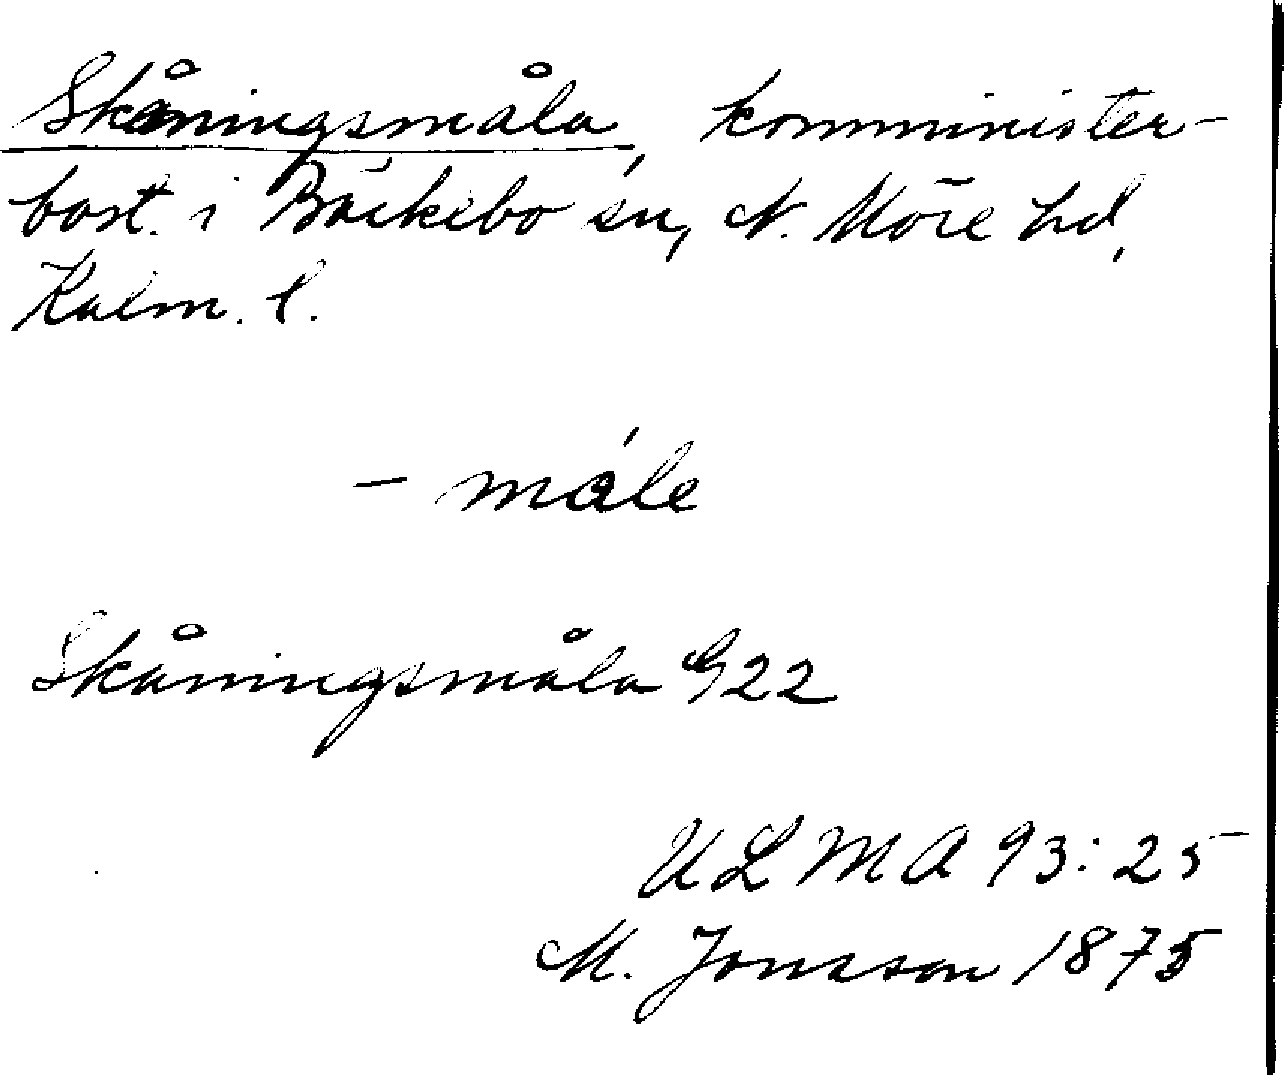 Skåningsmåla, komminister-
bost. i Bäckebo sn, N. Möre hd,
Kalm. l.
- måle
Skåningsmåla G22
ULMA 93:25
M. Jonsson 1875